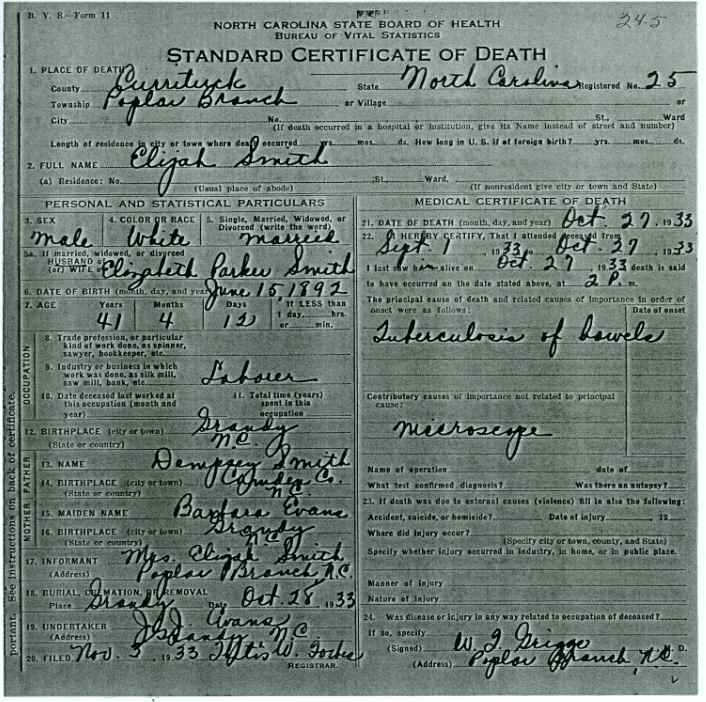 B. V. S.—Form 11
245
NORTH CAROLINA STATE BOARD OF HEALTH
BUREAU OF VITAL STATISTICS
STANDARD CERTIFICATE OF DEATH
1. PLACE OF DEATH
County Currituck State North Carolina Registered No. 25
Township Poplar Branch or Village or
City No. St., Ward
(If death occurred in a hospital or institution, give its Name instead of street and number)
Length of residence in city or town where death occurred yrs. mos. ds. How long in U. S. if of foreign birth? yrs. mos. ds.
2. FULL NAME Elijah Smith
(a) Residence: No. St. Ward,
(Usual place of abode) (If nonresident give city or town and State)
PERSONAL AND STATISTICAL PARTICULARS
3. SEX 4. COLOR OR RACE 5. Single, Married, Widowed, or
Divorced (write the word)
Male White married
5a. If married, widowed, or divorced
HUSBAND of
(or) WIFE of Elizabeth Parker Smith
6. DATE OF BIRTH (month, day, and year) June 15, 1892
7. AGE Years Months Days If LESS than
1 day, hrs.
41 4 12 or min.
OCCUPATION
8. Trade profession, or particular
kind of work done, as spinner,
sawyer, bookkeeper, etc.
9. Industry or business in which
work was done, as silk mill,
saw mill, bank, etc. Laborer
10. Date deceased last worked at
this occupation (month and
year)
11. Total time (years)
spent in this
occupation
12. BIRTHPLACE (city or town) Grandy
(State or country) N.C.
FATHER
13. NAME Dempsey Smith
14. BIRTHPLACE (city or town) Camden Co.
(State or country) N.C.
MOTHER
15. MAIDEN NAME Barbara Evans
16. BIRTHPLACE (city or town) Grandy
(State or country) N.C.
17. INFORMANT Mrs. Elizah Smith
(Address) Poplar Branch, N.C.
18. BURIAL, CREMATION, OR REMOVAL
Place Grandy Date Oct. 28, 1933
19. UNDERTAKER Evans
(Address) Grandy N.C.
20. FILED Nov. 3, 1933 W. Forbes
REGISTRAR.
MEDICAL CERTIFICATE OF DEATH
21. DATE OF DEATH (month, day, and year) Oct. 27, 1933
22. I HEREBY CERTIFY, That I attended deceased from
Sept. 1, 1933, to Oct. 27, 1933
I last saw him alive on Oct. 27, 1933 death is said
to have occurred on the date stated above, at 2 P. m.
The principal cause of death and related causes of importance in order of
onset were as follows: Date of onset
Tuberculosis of bowels
Contributory causes of importance not related to principal
cause:
microscope
Name of operation date of
What test confirmed diagnosis? Was there an autopsy?
23. If death was due to external causes (violence) fill in also the following:
Accident, suicide, or homicide? Date of injury, 19
Where did injury occur?
(Specify city or town, county, and State)
Specify whether injury occurred in industry, in home, or in public place.
Manner of injury
Nature of injury
24. Was disease or injury in any way related to occupation of deceased?
If so, specify
(Signed) W. T. Griggs M. D.
(Address) Poplar Branch, N.C.
portant. See instructions on back of certificate.